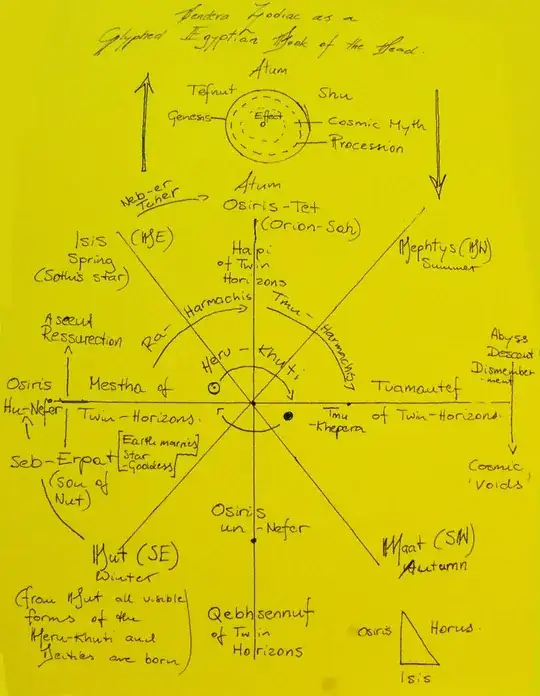 Dendera Zodiac as a
Glyphed Egyptian Book of the Dead.
Atum
Tefnut
Shu
Genesis
Effect
Cosmic Myth
Procession
Atum
Neb-er
Tcher
Osiris-Tet
(Orion-Sah)
Isis (NE)
Spring
(Sothis star)
Hapi
of Twin
Horizons
Nephtys (NW)
Summer
Ra-Harmachis
Tmu-Harmachis
Heru-Khuti
Ascent
Ressurection
Abyss
Descent
Dismember
-ment
Osiris
Hu-Nefer
Mestha of
Twin-Horizons.
Tmu
-Khepera
Tuamautef
of Twin-Horizons.
Seb-Erpat
(son of
Nut)
[Earth marries
Star
-Goddess]
Cosmic
'Voids'
Osiris
un-Nefer
Nut (SE)
Winter
Maat (SW)
Autumn
(from Nut all visible
forms of the
Heru-Khuti and
Deities are born)
Qebhsennuf
of Twin
Horizons
Osiris
Horus.
Isis